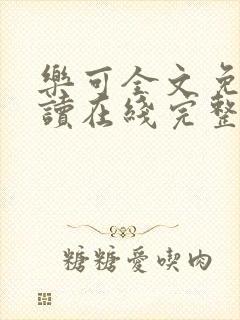 樂可全文免
讀在綫完整
糖糖愛喫肉